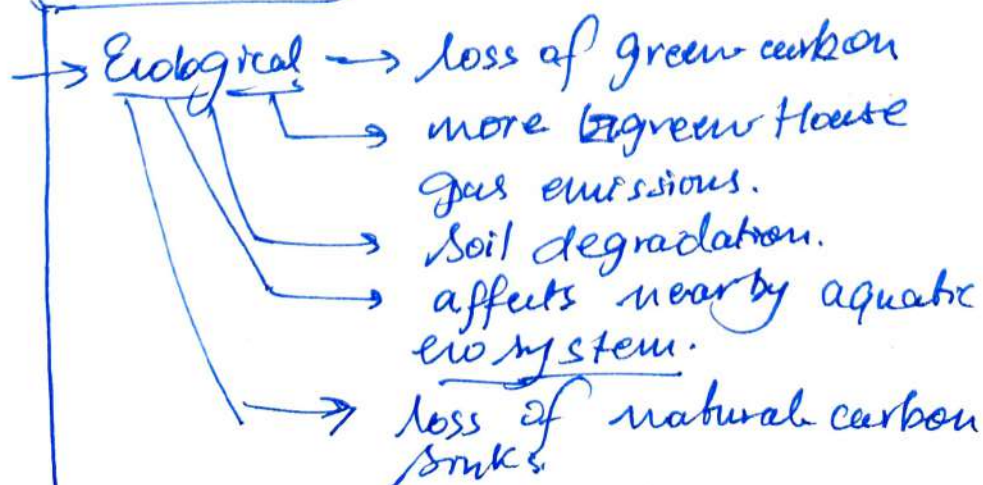 → Ecological → loss of green carbon
→ more green House
gas emissions.
→ soil degradation.
→ affects nearby aquatic
ecosystem.
→ loss of natural carbon
sinks.